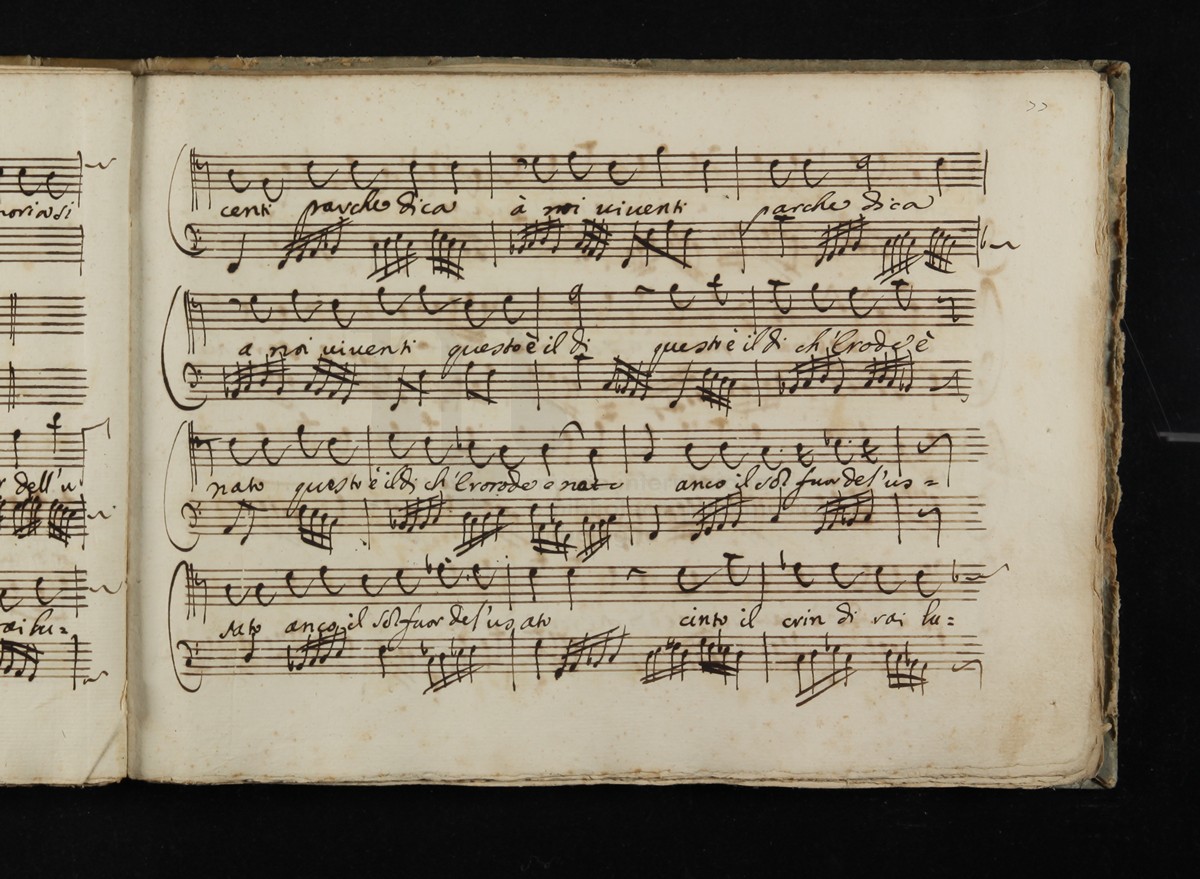 noriasi
centi parche dica à noi viventi parche dica
a noi viventi questo è il di questi è il di ch' l'erode è
r dell' u
nato questi è il di ch' l'erode è nato anco il sol fuor del' us=
rai lu=
sato anco il sol fuor del' usato cinto il crin di rai lu=